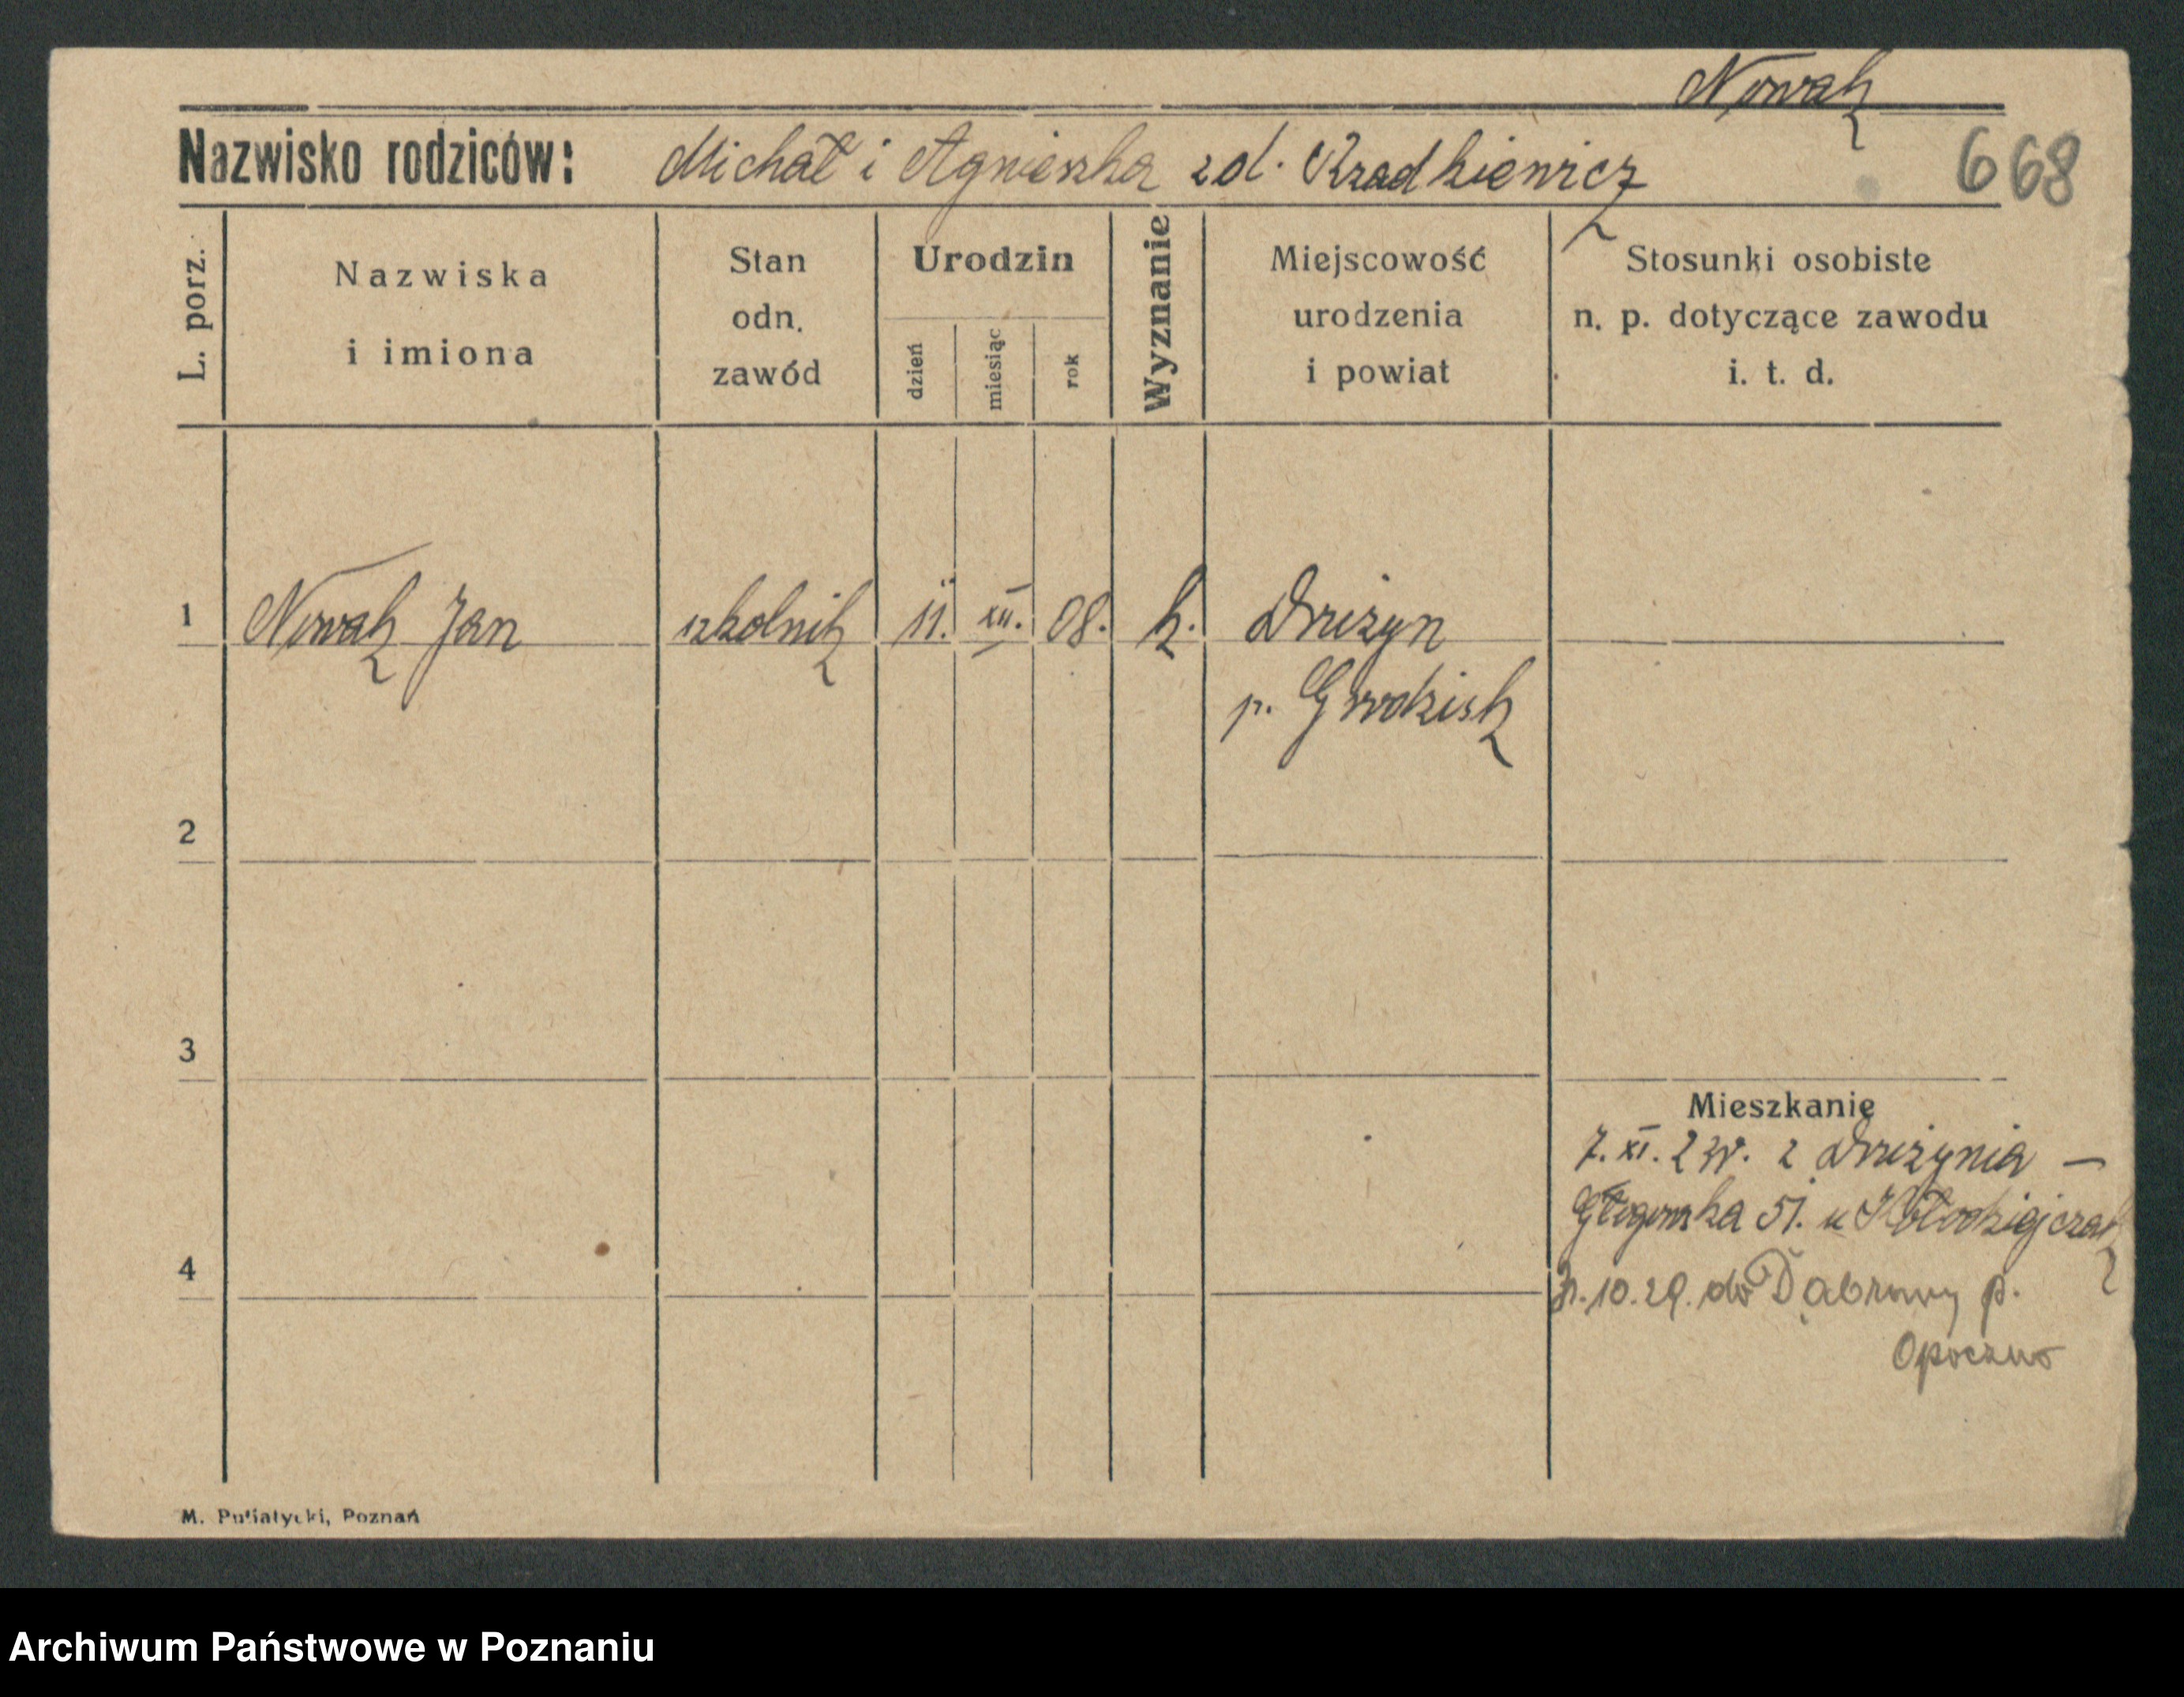 Nowak
Nazwisko rodziców: Michał i Agnieszka zd. Rzadkiewicz
668
L. porz.
Nazwiska
i imiona
Stan
odn.
zawód
Urodzin
dzień
miesiąc
rok
Wyznanie
Miejscowość
urodzenia
i powiat
Stosunki osobiste
n. p. dotyczące zawodu
i. t. d.
1 Nowak Jan szkolnik 11. XII. 08. k. Drużyn
p. Grodzisk
2
3
Mieszkanie
7. XI. 23r. z Drużynia —
Głogowska 51. u Kołodziejczak
4
10.29. do Dąbrowy p.
Opoczno
M. Putiatycki, Poznań
Archiwum Państwowe w Poznaniu